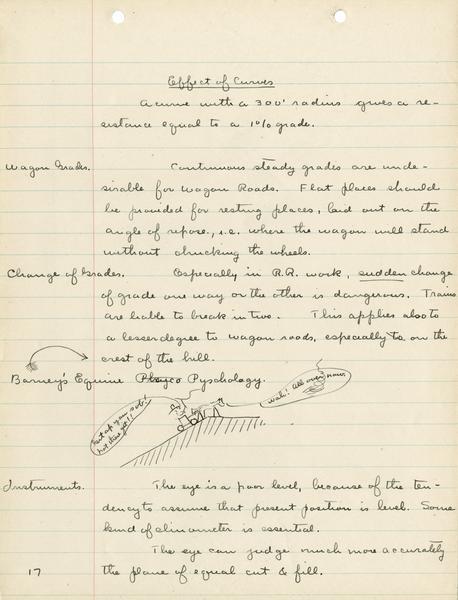 Effect of Curves
A curve with a 300' radius gives a re-
sistance equal to a 1% grade.
Wagon Grades. Continuous steady grades are unde-
sirable for Wagon Roads. Flat places should
be provided for resting places, laid out on the
angle of repose, i.e. where the wagon will stand
without chucking the wheels.
Change of Grades. Especially in R.R. work, sudden change
of grade one way or the other is dangerous. Trains
are liable to break in two. This applies also to
a lesser degree to wagon roads, especially to on the
crest of the hill.
Barney's Equine Pyschology.
not done yet!!
Wah! All over now.
Instruments. The eye is a poor level, because of the ten-
dency to assume that present position is level. Some
kind of clinometer is essential.
The eye can judge much more accurately
17 the plane of equal cut & fill.